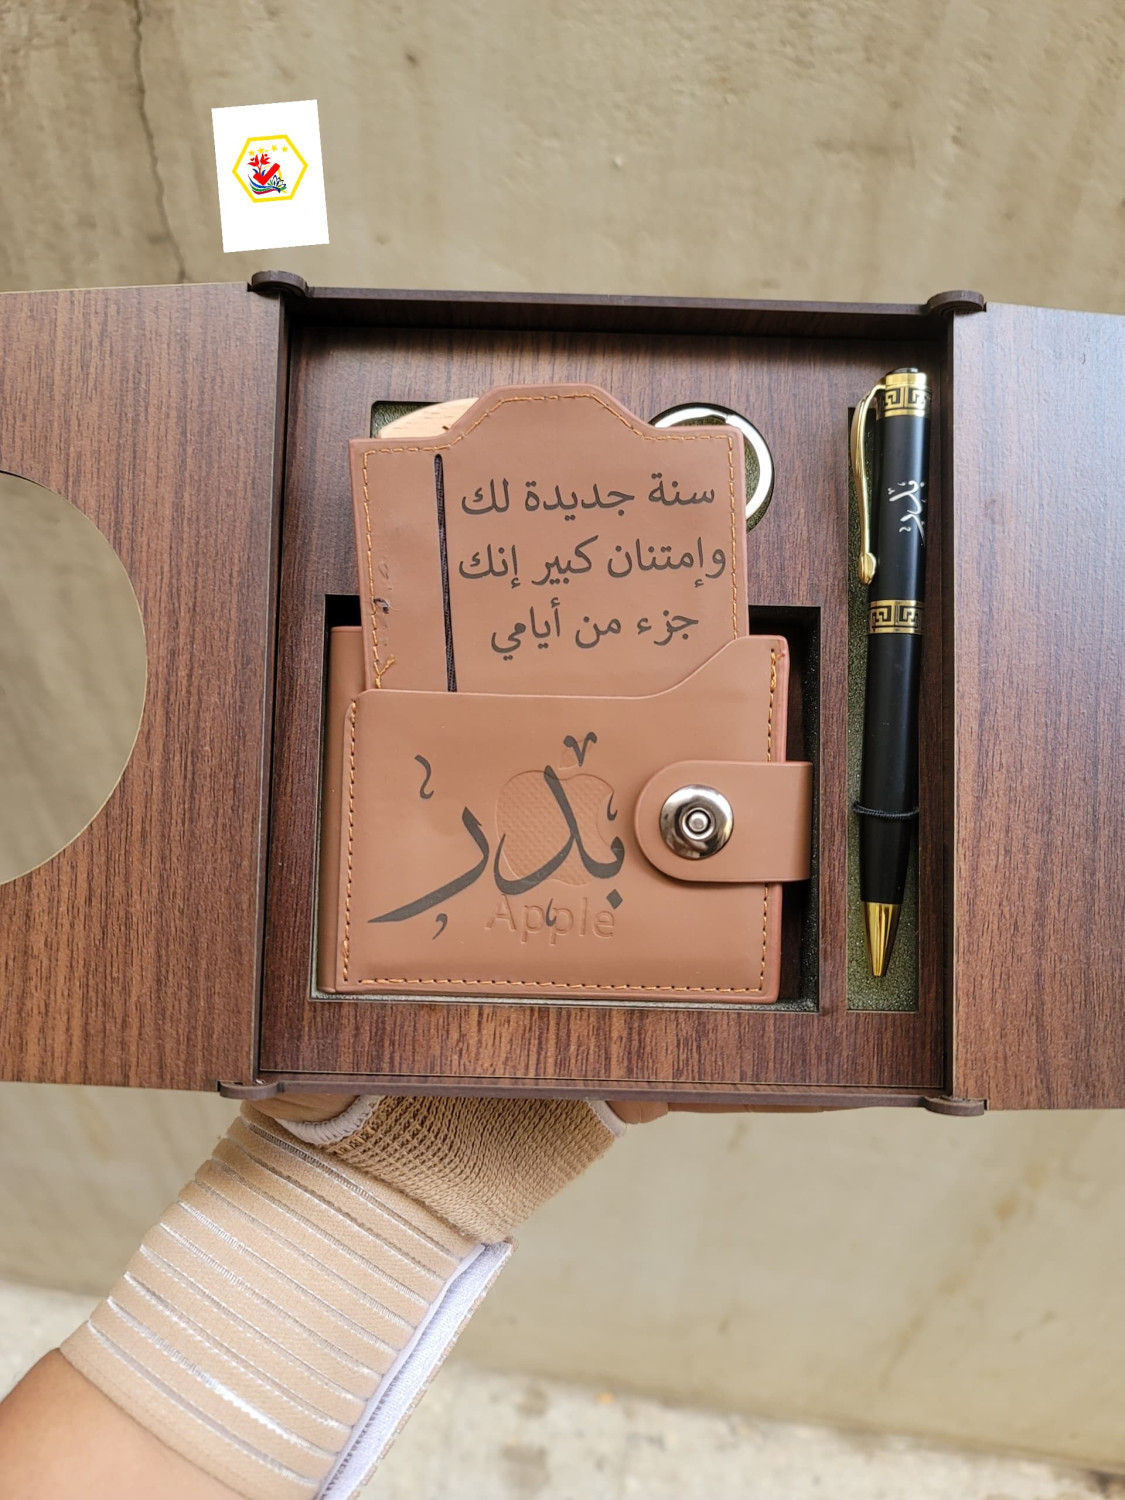 سنة جديدة لك
وإمتنان كبير إنك
جزء من أيامي
بدر
Apple
بدر